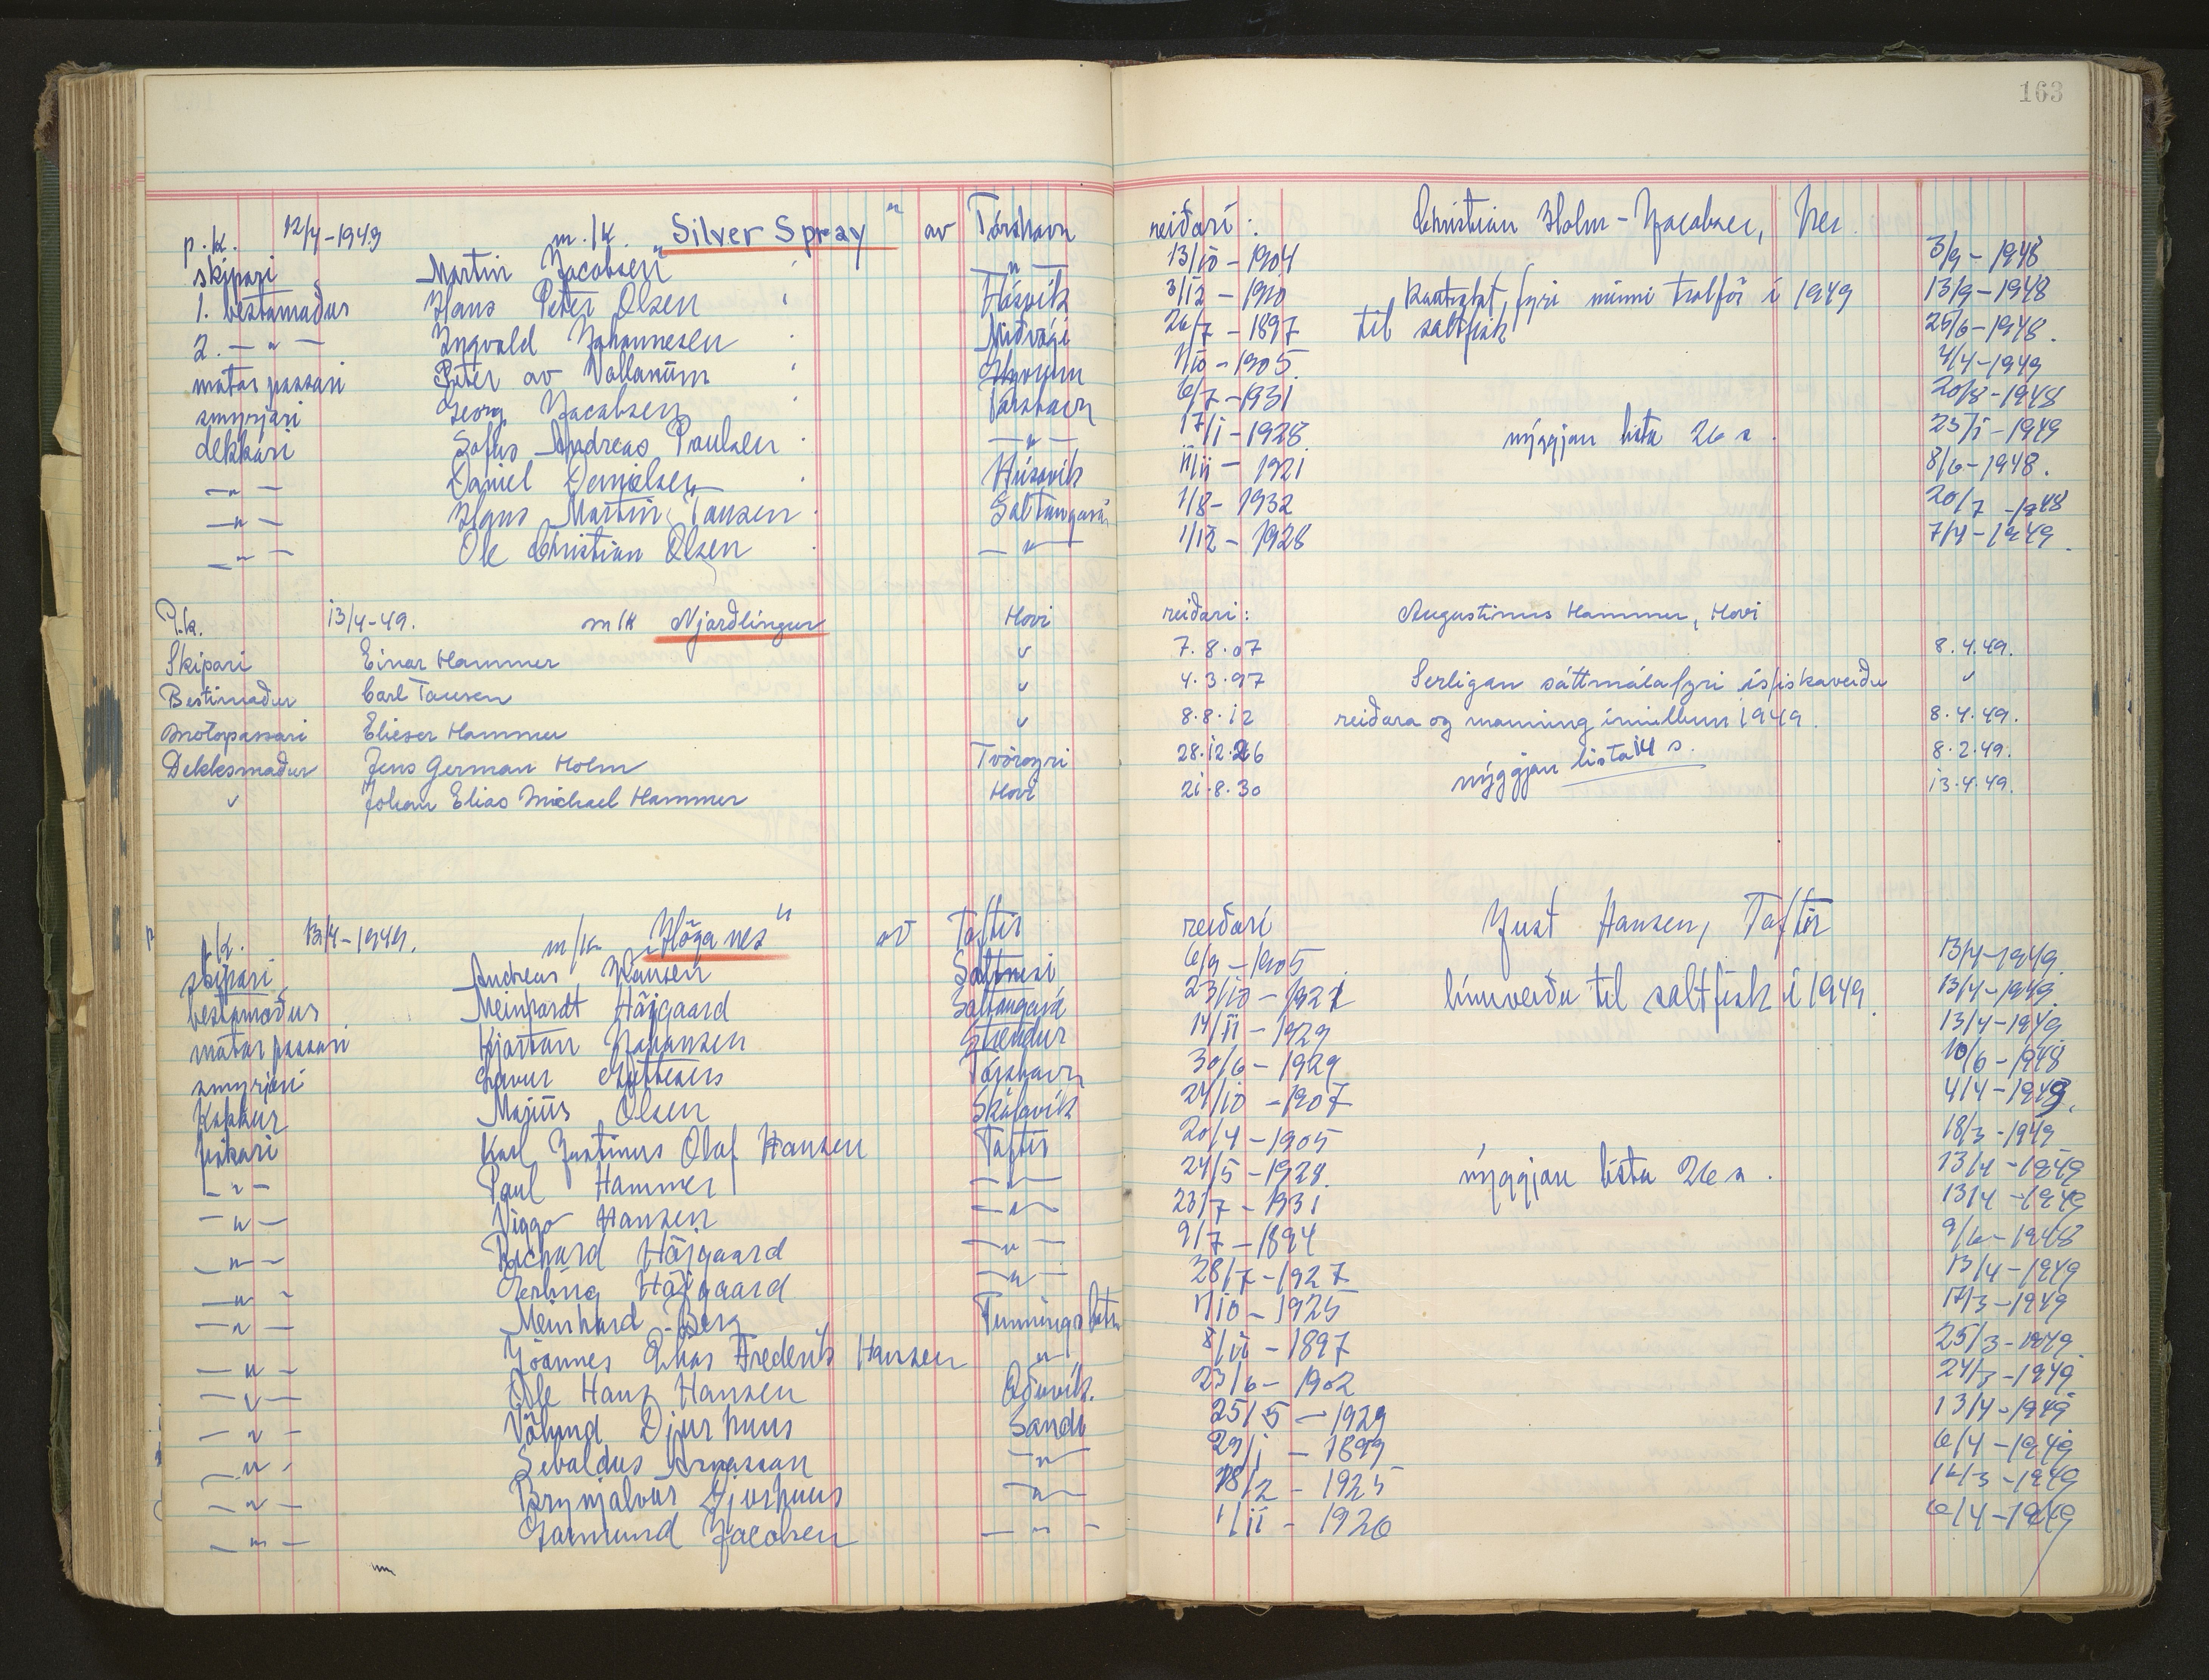 163
p.k. 12/4-1949 m./k. „Silver Spray" av Tórshavn reiðari: Christian Holm-Jacobsen, Nes.
skipari Martin Jacobsen —"— 13/10-1904 3/9-1948
1. bestamaður Hans Peter Olsen Húsvík 3/12-1910 fyri minni trolför í 1949 13/9-1948
2. —"— Ingvald Johannesen Miðvági 26/7-1897 til saltfisk 25/6-1948.
motorpassari Peter av Vollanum 1/10-1905. 4/4-1949
smyrjari Georg Jacobsen Tórshavn 6/7-1931 20/8-1948
dekkari Sofus Andreas Poulsen —"— 17/1-1928 nýggjan lista 26 s. 25/1-1949
—"— Daniel Danielsen Húsavík 11/11-1921 8/6-1948.
—"— Hans Martin Tausen Saltangará 1/8-1932 20/7-1948
—"— Ole Christian Olsen —"— 1/12-1928 7/4-1949.
P.k. 13/4-49. m/k Njarðlingur Hovi reiðari: Augustinus Hammer, Hovi
Skipari Einar Hammer " 7.8.07 8.4.49.
Bestimaður Carl Tausen " 4.3.97 Serligan sáttmála fyri ísfiskaveiðu "
Motorpassari Elieser Hammer " 8.8.12 reiðara og manning ímillum 1949. 8.4.49.
Dekksmaður Jens German Holm Tvöroyri 28.12.26 nýggjan lista 14 s. 8.2.49.
" Johan Elias Michael Hammer Hovi 21.8.30 13.4.49.
p.k. 13/4-1949. m/k „Höganes" av Toftir reiðari Just Hansen, Toftir
skipari Andreas Hansen Saltnesi 6/9-1905 13/4-1949.
bestamaður Meinhardt Höjgaard Saltangará 23/10-1921 línuveiðu til saltfisk í 1949. 13/4-1949.
motorpassari Kjartan Johansen Strendur 14/11-1929 13/4-1949
smyrjari Tórshavn 30/6-1929 10/6-1948
Kokkur Majus Olsen Skálavík 24/10-1907 4/4-1949.
fiskari Karl Justinus Olaf Hansen Toftir 20/4-1905 18/3-1949
—"— Paul Hammer —"— 24/5-1928. nýggjan lista 26 s. 13/4-1949
—"— Viggo Hansen —"— 23/7-1931 13/4-1949
—"— Richard Höjgaard —"— 9/7-1894 9/6-1948
—"— Erling Höjgaard —"— 28/7-1927 13/4-1949
—"— Meinhard Berg 1/10-1925 17/3-1949
—"— Jóannes Elias Frederik Hansen " 8/11-1897 25/3-1949.
—"— Ole Hans Hansen Æðuvík. 23/6-1902 24/3-1949
—"— Völund Djurhuus Sandi 25/5-1929 13/4-1949
—"— Sebaldus Arnason —"— 29/1-1899 6/4-1949
—"— Brynjalvur Djurhuus —"— 18/2-1925 14/3-1949
—"— Jacobsen —"— 1/11-1926 6/4-1949